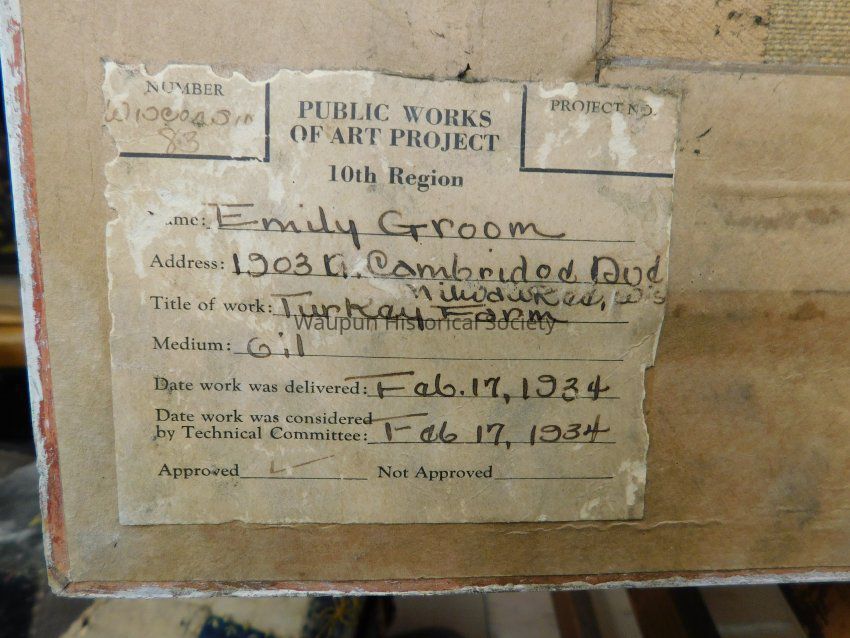 NUMBER
Wisconsin
83
PUBLIC WORKS
OF ART PROJECT
10th Region
PROJECT NO.
me: Emily Groom
Address: 1903 N. Cambridge Ave
Milwaukee, Wis
Title of work: Turkey Farm
Waupun Historical Society
Medium: Oil
Date work was delivered: Feb. 17, 1934
Date work was considered
by Technical Committee: Feb 17, 1934
Approved ✓ Not Approved